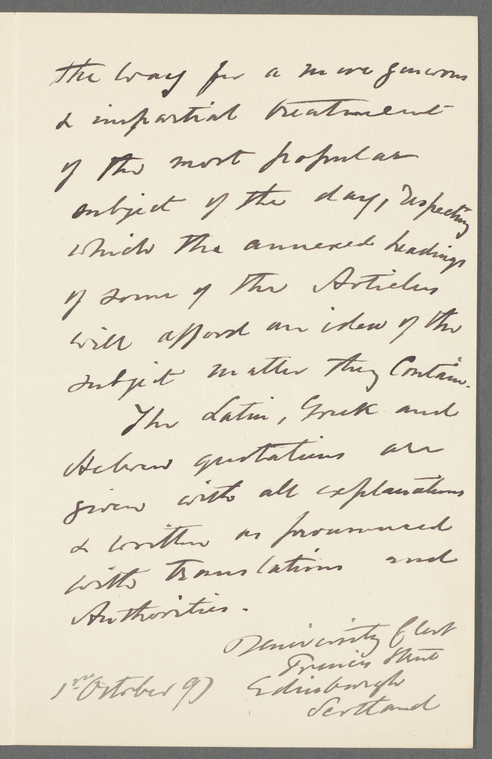 the way for a more generous
& impartial treatment
of the most popular
subject of the day, respecting
which the annexed headings
of some of the Articles
will afford an idea of the
subject matter they Contain.
The Latin, Greek and
Hebrew quotations are
given with all explanations
& written as pronounced
with translations and
Authorities.
University Club
Princes Street
1st October 97 Edinburgh
Scotland